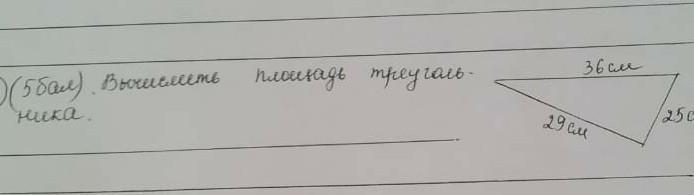 )(5бал). Вычислить площадь треуголь-
ника.
36см
29см
25с